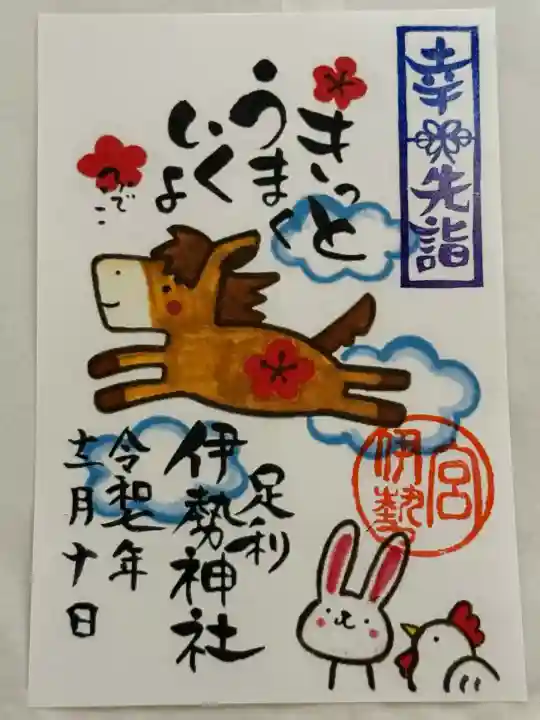 幸先詣
きっと
うまく
いくよ
ふでこ
足利
伊勢神社
令和七年
十二月十日
伊勢宮